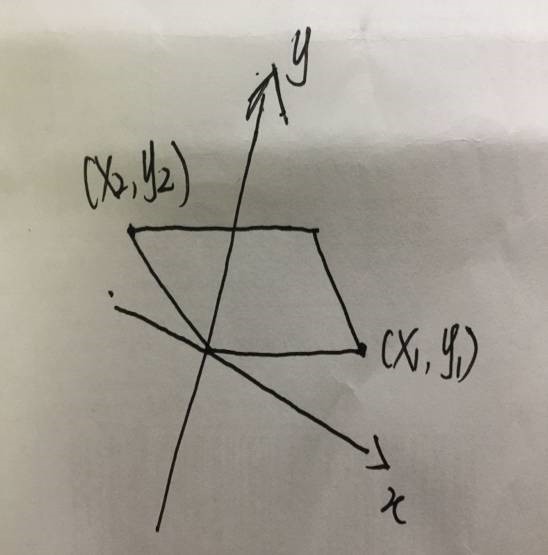 y
(x₂, y₂)
(x₁, y₁)
x